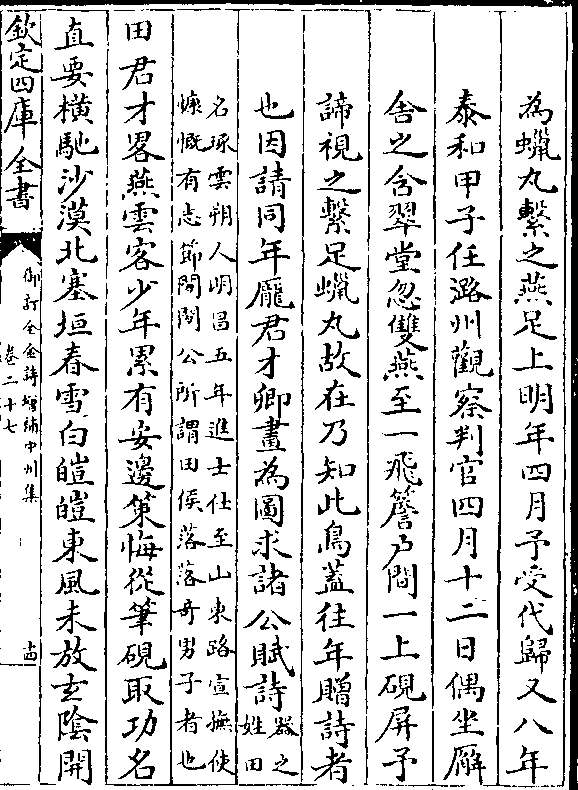 為蠟丸繫之燕足上明年四月予受代歸又八年
泰和甲子任潞州觀察判官四月十二日偶坐廨
舍之含翠堂忽雙燕至一飛簷戶間一上硯屏予
諦視之繫足蠟丸故在乃知此鳥蓋往年贈詩者
也因請同年龐君才卿畫為圖求諸公賦詩器之
姓田
名琢雲朔人明昌五年進士仕至山東路宣撫使
慷慨有志節閑閑公所謂田侯落落奇男子者也
田君才畧燕雲客少年累有安邊策悔從筆硯取功名
直要橫馳沙漠北塞垣春雪白皚皚東風未放玄陰開
欽定四庫全書
御訂全金詩增補中州集
卷二十七
十四